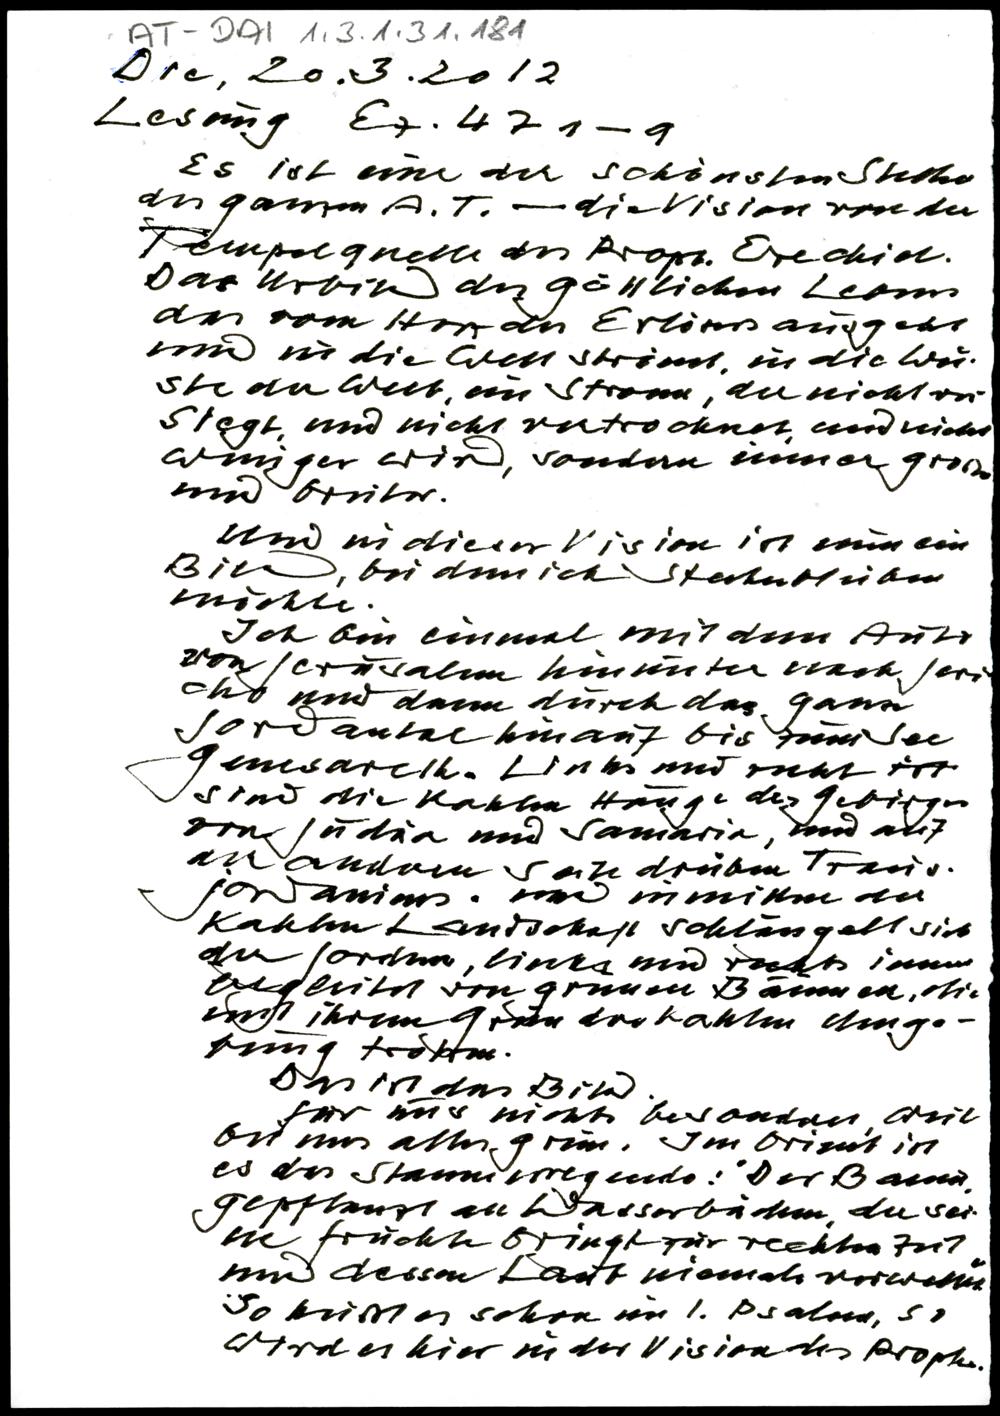 AT-DAI 1.3.1.31.181
Die, 20.3.2012
Lesung Ez. 47 1–9
Es ist eine der schönsten Stellen
des ganzen A.T. — die Vision von der
Tempelquelle des Proph. Ezechiel.
Das Urbild des göttlichen Lebens
das vom Herz des Erlösers ausgeht
und in die Welt strömt, in die Wü-
ste der Welt, ein Strom, der nicht ver-
siegt, und nicht vertrocknet, und nicht
weniger wird, sondern immer grösser
und breiter.
Und in dieser Vision ist nun ein
Bild, bei dem ich steckenbleiben
möchte.
Ich bin einmal mit dem Auto
von Jerusalem hinunter nach Jeri
cho und dann durch das ganze
Jordantal hinauf bis zum See
Genesareth. Links und recht ist
sind die kahlen Hänge des Gebirges
von Judäa und Samaria, und auf
der anderen Seite drüben Trans-
jordaniens. und inmitten der
kahlen Landschaft schlängelt sich
der Jordan, links und rechts immer
begleitet von grünen Bäumen, die
mit ihrem Grün der kahlen Umge-
bung trotzen.
Das ist das Bild.
für uns nichts besonderes, weil
bei uns alles grün. Im Orient ist
es das Staunenerregende: "Der Baum,
gepflanzt an Wasserbächen, der sei-
ne Früchte bringt zur rechten Zeit
und dessen Laub niemals verwelkt"
So heißt es schon im 1. Psalm, so
wird es hier in der Vision des Proph.